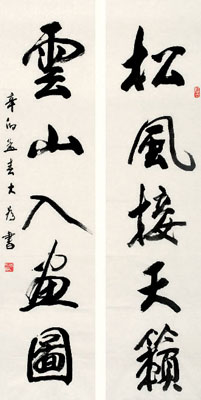 松風接天籟
雲山入畫圖
辛卯孟春大為書